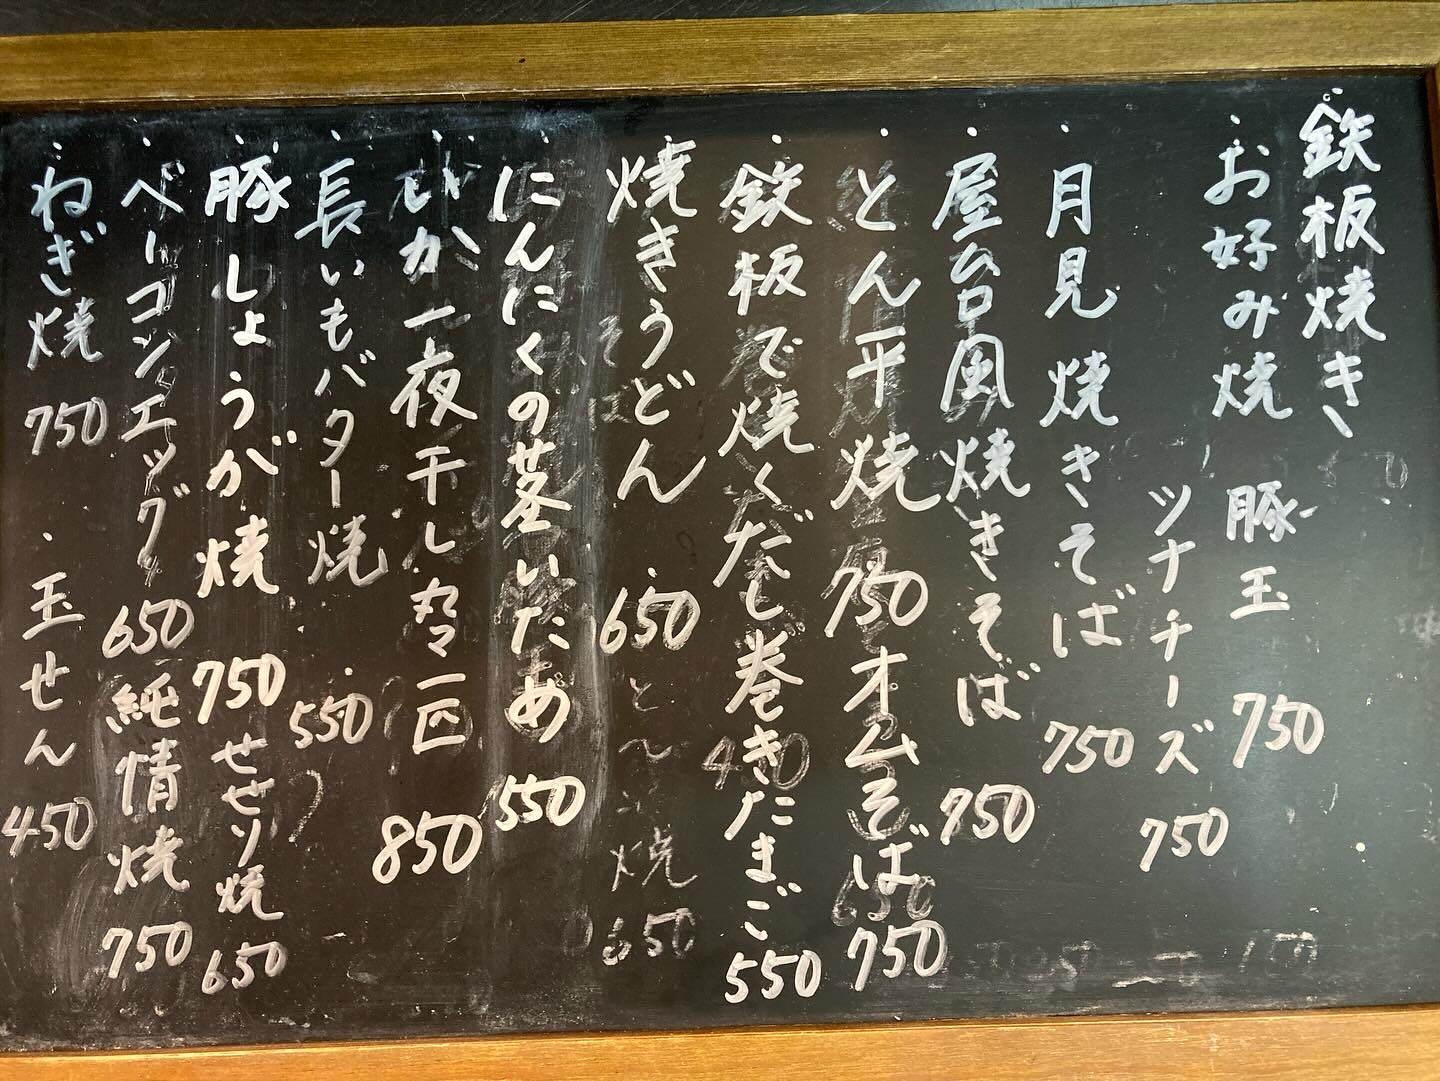 鉄板焼き
・お好み焼 豚玉 750
ツナチーズ 750
・月見焼きそば 750
・屋台風焼きそば 750
・とん平焼 750 オムそば 750
・鉄板で焼くだし巻きたまご 550
・焼きうどん 650
・にんにくの茎いため 550
・いか一夜干し丸々一匹 850
・長いもバター焼 550
・豚しょうが焼 750 せせり焼 650
・ベーコンエッグ 650 純情焼 750
・ねぎ焼 750 ・玉せん 450